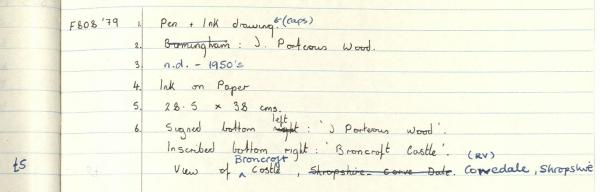 F808'79 1. Pen + Ink drawing. (caps)
2. Birmingham : J. Porteous Wood.
3. n.d. - 1950's
4. Ink on Paper
5. 28.5 x 38 cms.
left
6. Signed bottom right : 'J Porteous Wood'.
Inscribed bottom right : 'Broncroft Castle'. (RV)
Broncroft
t5 View of ^ Castle, Shropshire - Corve Dale. Corvedale, Shropshire